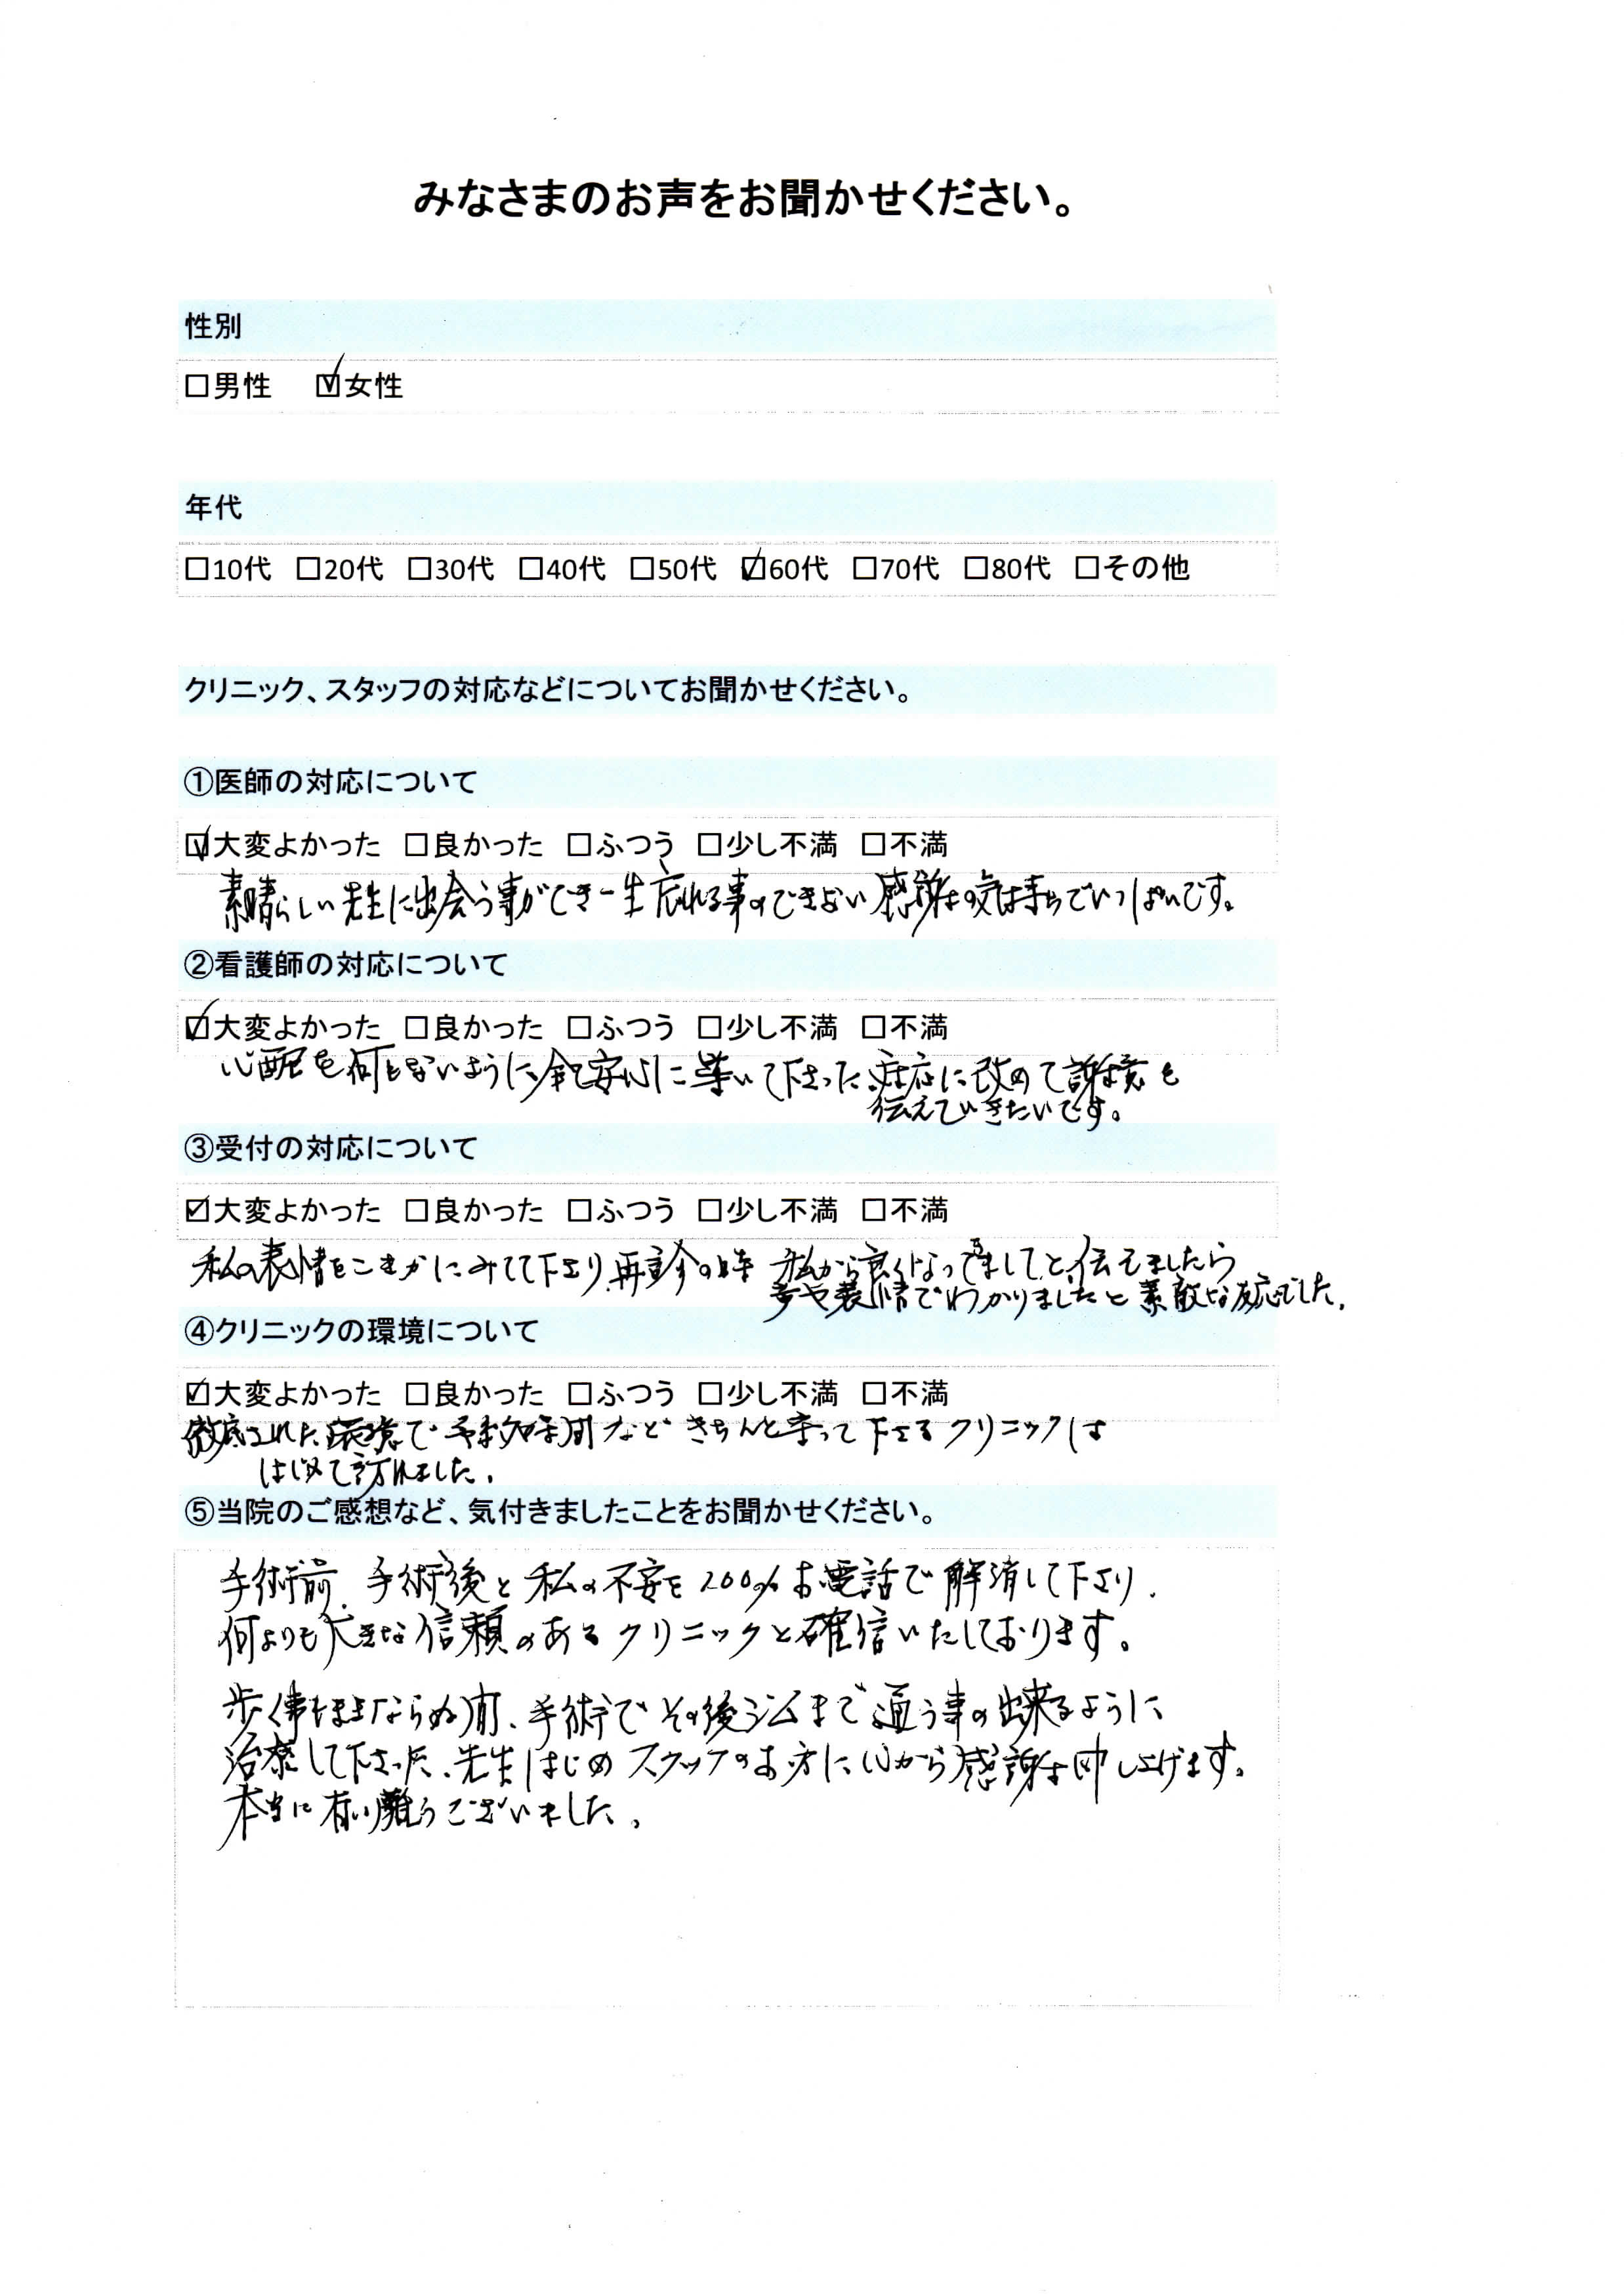 みなさまのお声をお聞かせください。
性別
□男性 ☑女性
年代
□10代 □20代 □30代 □40代 □50代 ☑60代 □70代 □80代 □その他
クリニック、スタッフの対応などについてお聞かせください。
①医師の対応について
☑大変よかった □良かった □ふつう □少し不満 □不満
素晴らしい先生に出会う事ができ一生忘れる事のできない感謝の気持ちでいっぱいです。
②看護師の対応について
☑大変よかった □良かった □ふつう □少し不満 □不満
心配を何もないように、全て安心に導いて下さった対応に改めて謝意を
伝えていきたいです。
③受付の対応について
☑大変よかった □良かった □ふつう □少し不満 □不満
私の表情をこまかにみてて下さり、再診の時 私から良くなってきましてと伝えましたら
表情でわかりましたと素敵な反応でした。
④クリニックの環境について
☑大変よかった □良かった □ふつう □少し不満 □不満
徹底された環境で予約時間などきちんと守って下さるクリニックは
はじめて訪れました。
⑤当院のご感想など、気付きましたことをお聞かせください。
手術前、手術後と私の不安を200%お電話で解消して下さり、
何よりも大きな信頼のあるクリニックと確信いたしております。
歩く事もままならぬ前、手術でその後ジムまで通う事の出来るように
治療して下さった、先生はじめスタッフのお方に心から感謝申し上げます。
本当に有り難うございました。